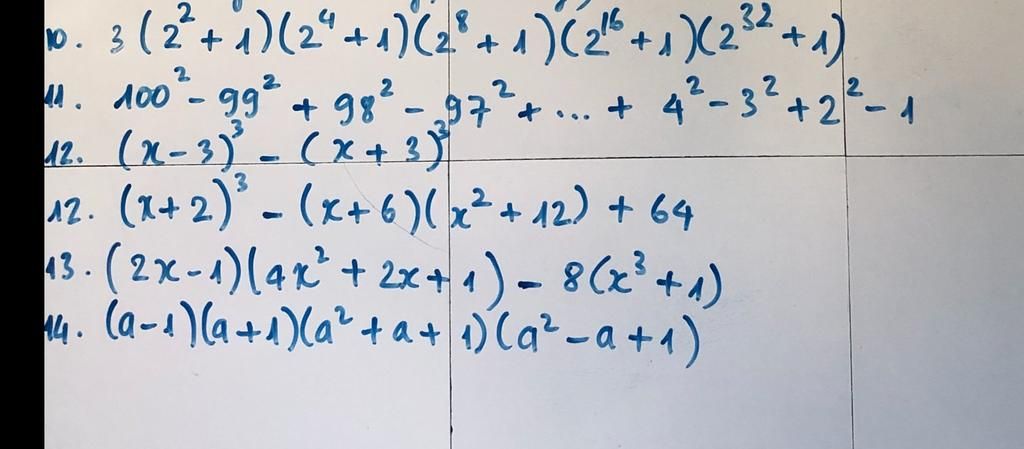 10. 3(2² + 1)(2⁴ + 1)(2⁸ + 1)(2¹⁶ + 1)(2³² + 1)
11. 100² - 99² + 98² - 97² + ... + 4² - 3² + 2² - 1
12. (x - 3)³ - (x + 3)³
12. (x + 2)³ - (x + 6)(x² + 12) + 64
13. (2x - 1)(4x² + 2x + 1) - 8(x³ + 1)
14. (a - 1)(a + 1)(a² + a + 1)(a² - a + 1)